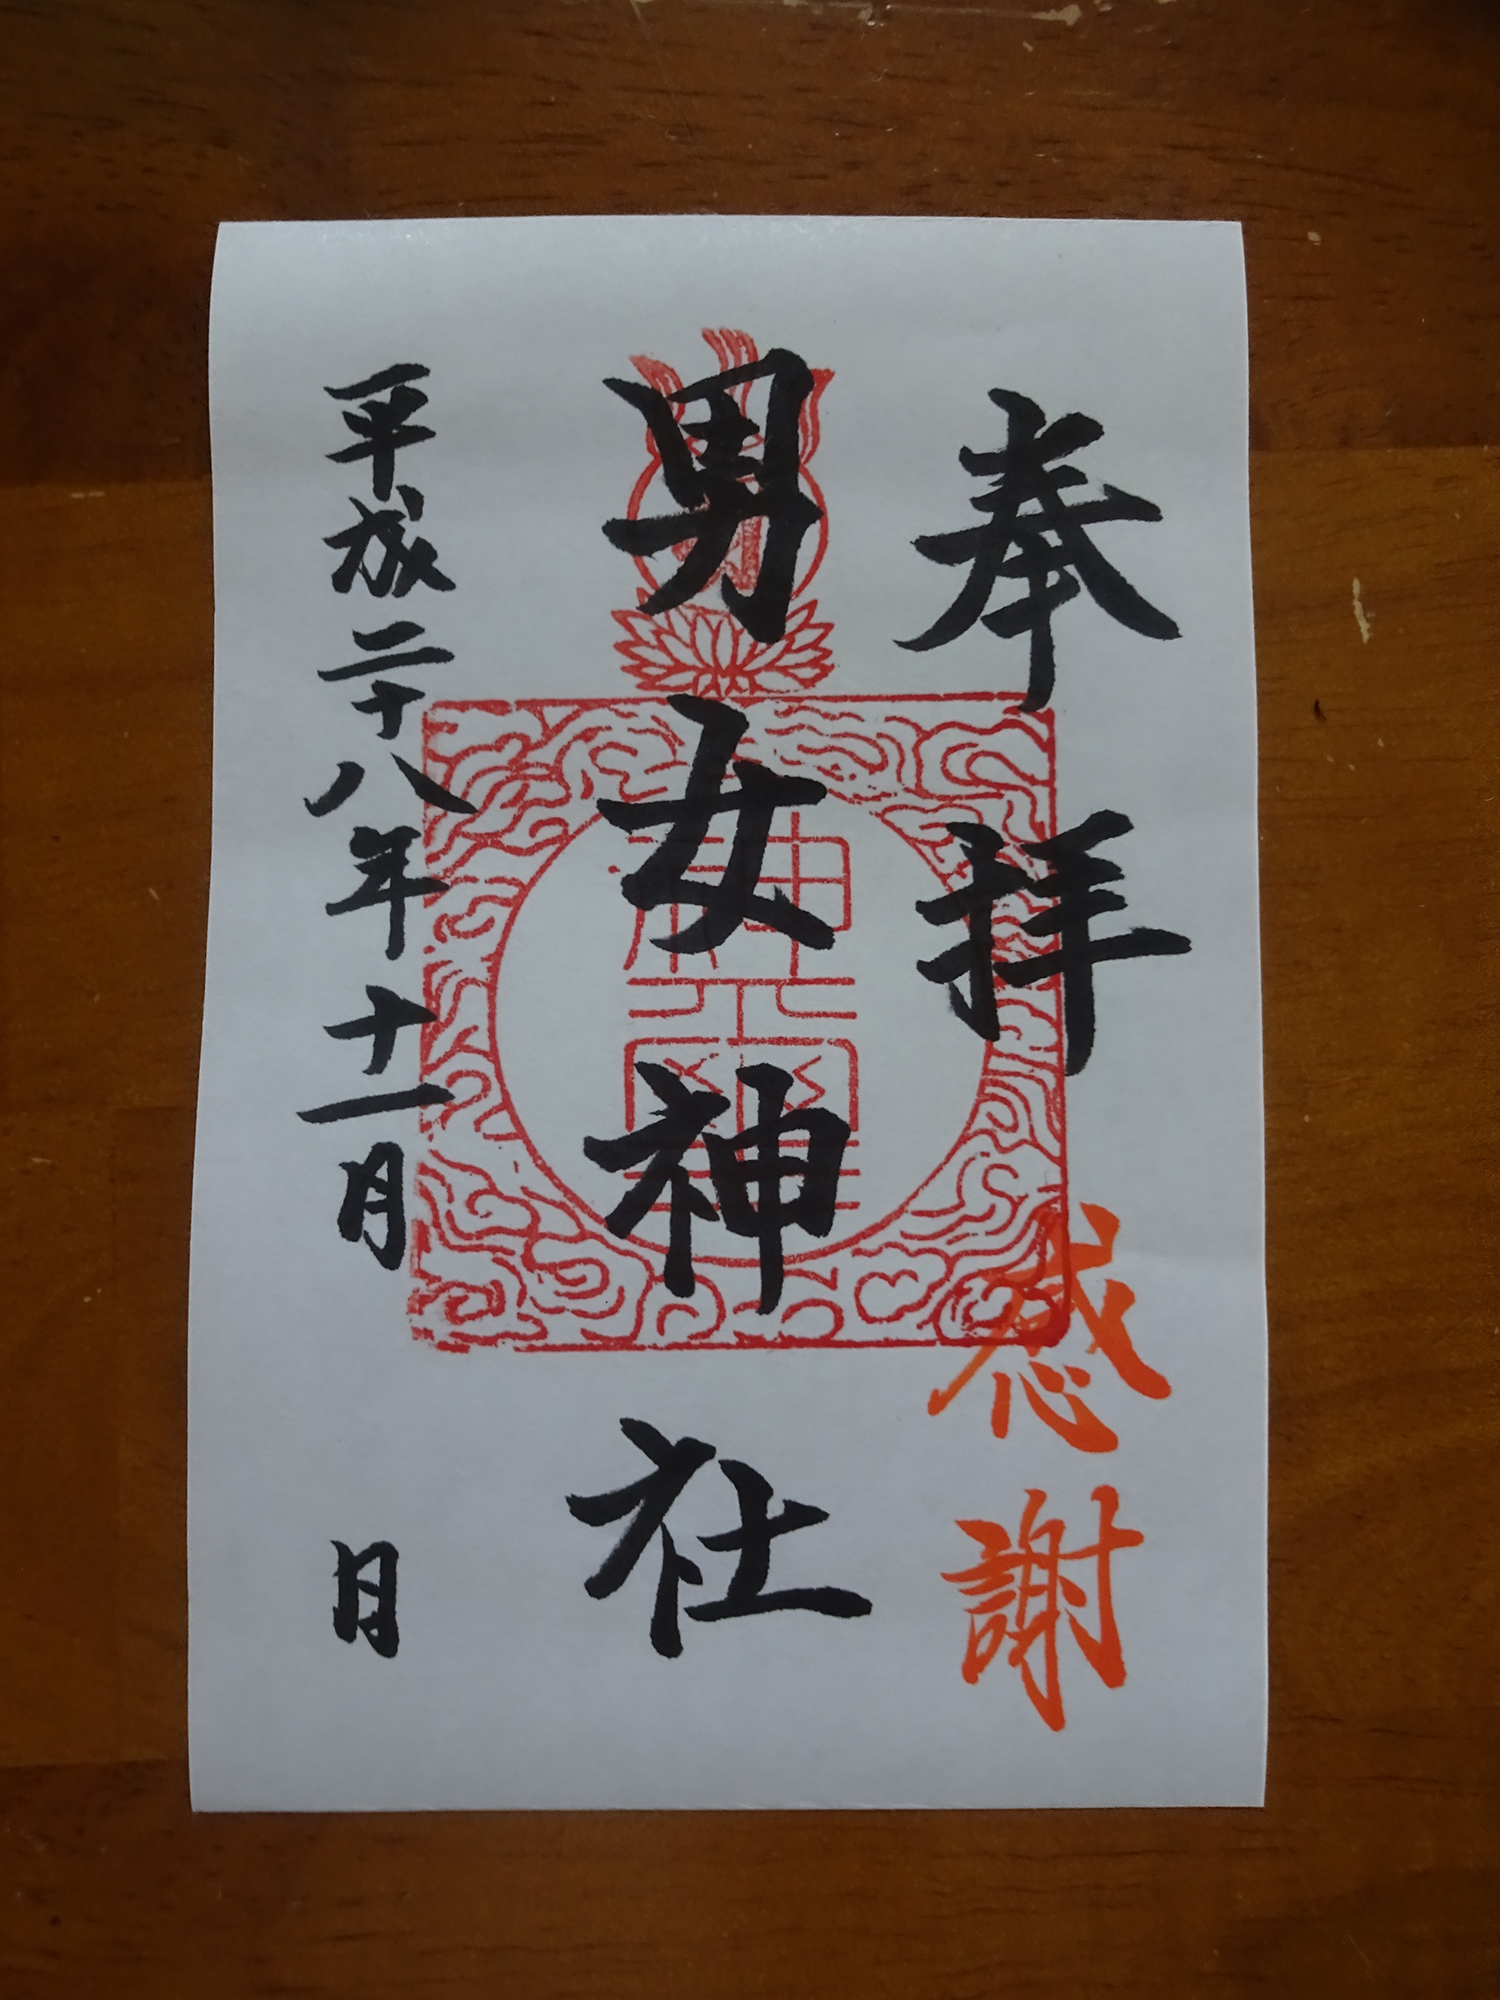 奉拝
感謝
男女神社
平成二十八年十一月 日